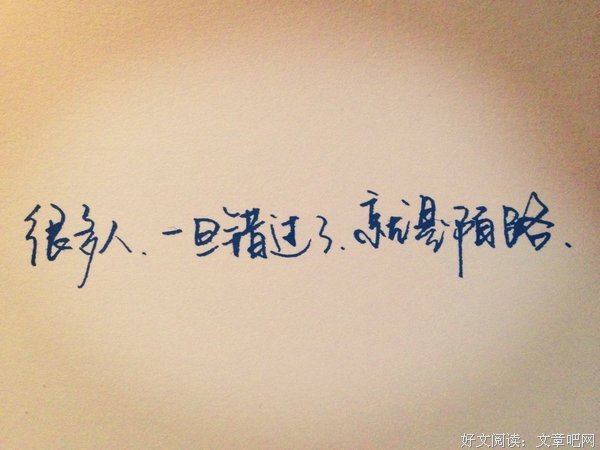 很多人、一旦错过了、就是陌路、
好文阅读：文章吧网